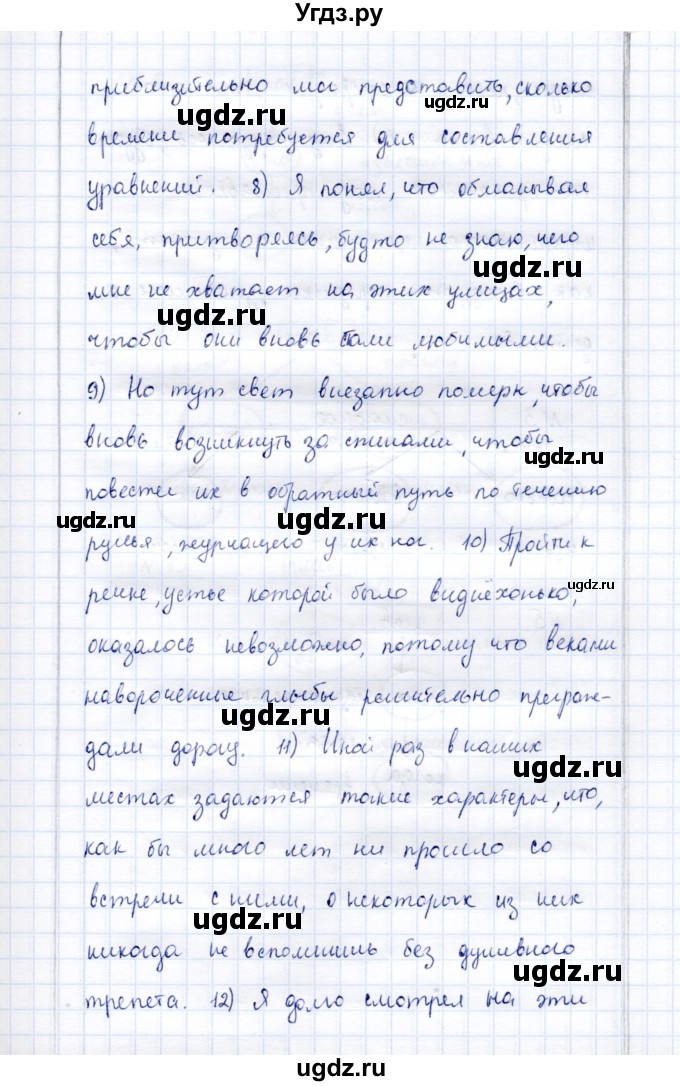 Угдз.ру
приблизительно мог представить, сколько
ugdz.ru
ugdz.ru
времени потребуется для составления
уравнений. 8) Я понял, что обманывал
ugdz.ru
себя, притворяясь, будто не знаю, чего
ugdz.ru
мне не хватает на этих улицах,
ugdz.ru
чтобы они вновь стали любимыми.
9) Но тут свет внезапно померк, чтобы
вновь возникнуть за спинами, чтобы
ugdz.ru
повести их в обратный путь по течению
ugdz.ru
ugdz.ru
ручья, журчащего у их ног. 10) Пройти к
ugdz.ru
речке, устье которой было виднёхонько,
оказалось невозможно, потому что веками
навороченные глыбы решительно преграж-
ugdz.ru
дали дорогу. 11) Иной раз в наших
ugdz.ru
местах задаются такие характеры, что,
как бы много лет ни прошло со
встречи с ними, о некоторых из них
ugdz.ru
никогда не вспомнишь без душевного
ugdz.ru
трепета. 12) Я долго смотрел на эти
ugdz.ru